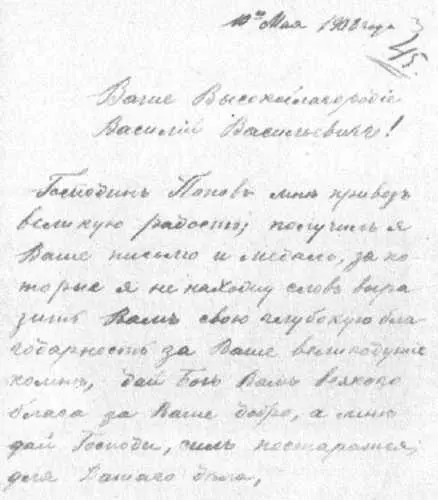 10го Мая 1908 года
45.
Ваше Высокоблагородіе
Василій Васильевичъ!
Господинъ Поповъ мнѣ привезъ
великую радость; получилъ я
Ваше письмо и медаль, за ко-
торые я не нахожу словъ выра
зить Вамъ свою глубокую бла
годарность за Ваше великодушіе
комнѣ, дай Богъ Вамъ всякого
блага за Ваше добро, а мнѣ
дай Господи, силъ постараться
для Вашего дела,